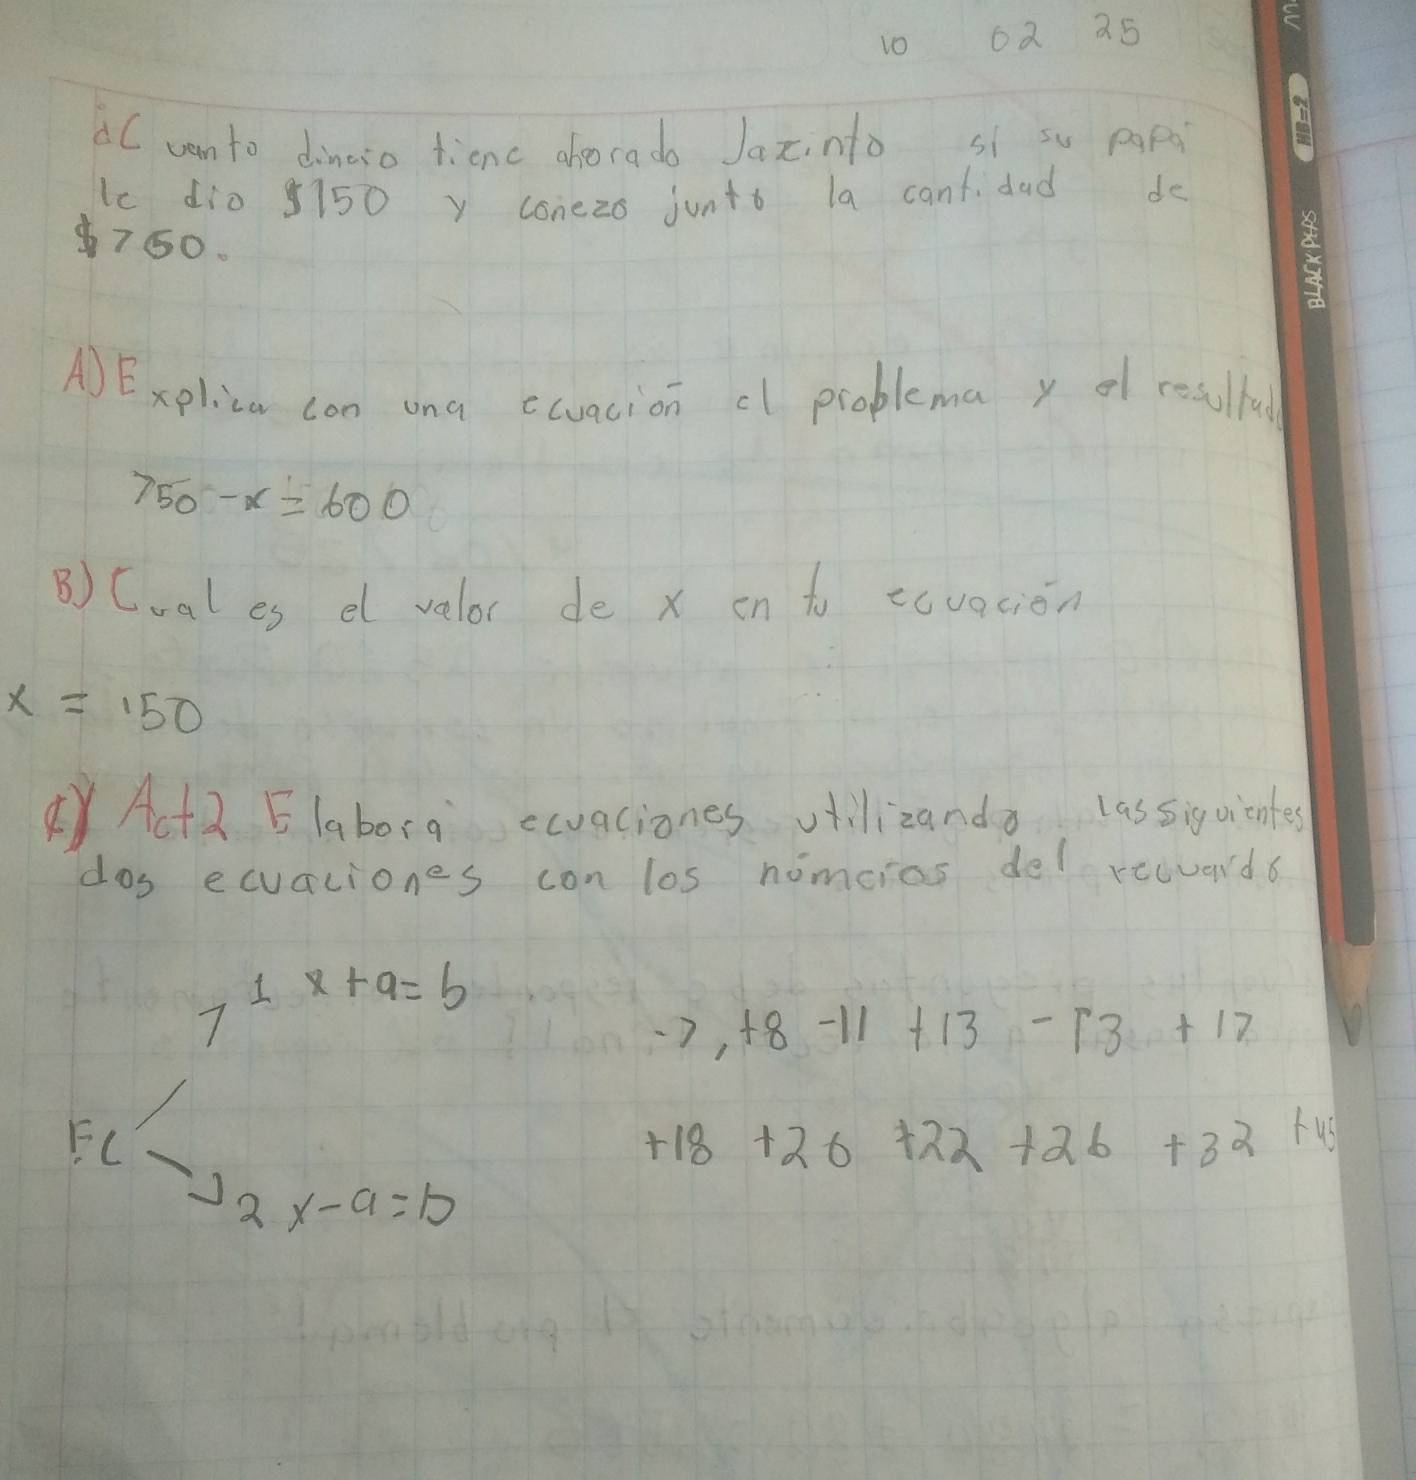 10 02 25
¿Cuanto dineio tiene ahorado Jazinto si su papá
le dio $150 y conezo junto la cantidad de
$750.
A) Explica con una ecuación el problema y el resultado
750 - x = 600
B) Cual es el valor de x en tu ecuación
x = 150
C) Act 2 Elabora ecuaciones utilizando las siguientes
dos ecuaciones con los números del recuardo
1 x+a=b
-7, +8 -11 +13 -13 +17
EC
+18 +20 +22 +26 +32 +45
2 x-a=b
BLACK PEPS
HB=2